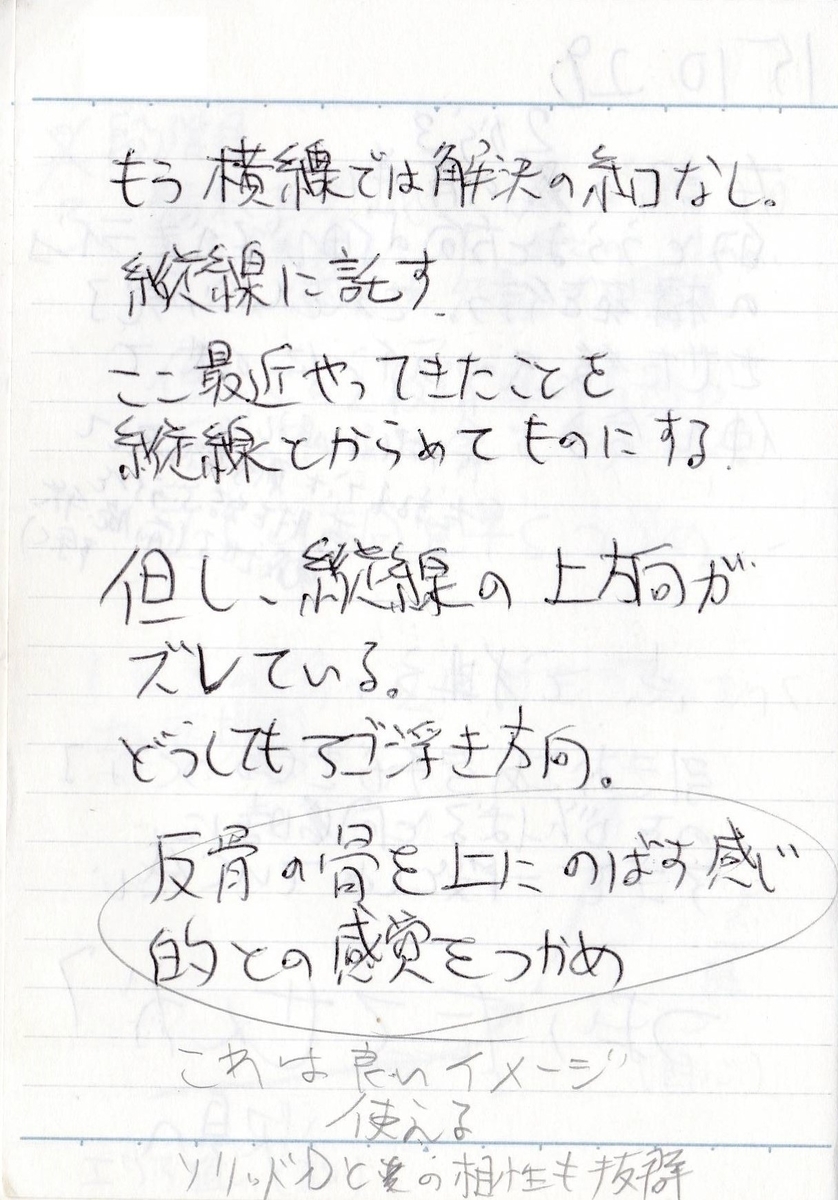 もう横線では解決の糸口なし。
縦線に託す
ここ最近やってきたことを
縦線とからめてものにする
但し、縦線の上方向が
ズレている。
どうしてもアゴ浮き方向。
反骨の骨を上にのばす感じ
的との感覚をつかめ
これは良いイメージ
使える
ソリッドDとの相性も抜群